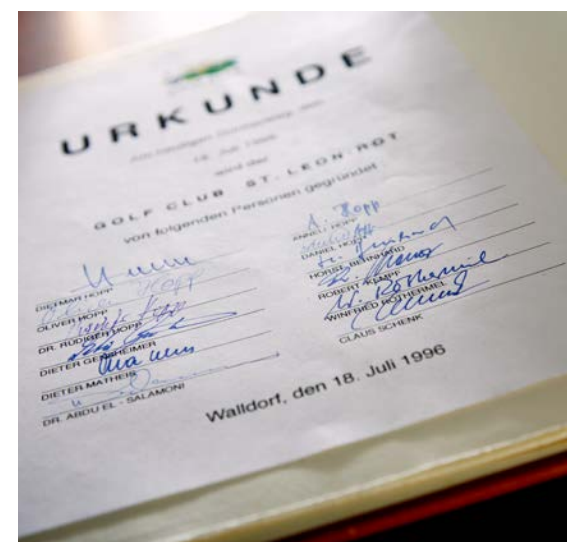 URKUNDE
18. Juli 1996
wird der
GOLF CLUB ST. LEON-ROT
von folgenden Personen gegründet
DIETMAR HOPP
OLIVER HOPP
DR. RÜDIGER HOPP
DIETER GENSHEIMER
DIETER MATHEIS
DR. ABDU EL - SALAMONI
A. Hopp
ANNELI HOPP
DANIEL HOPP
HORST BERNHARD
ROBERT KEMPF
W. Rothermel
WINFRIED ROTHERMEL
CLAUS SCHENK
Walldorf, den 18. Juli 1996